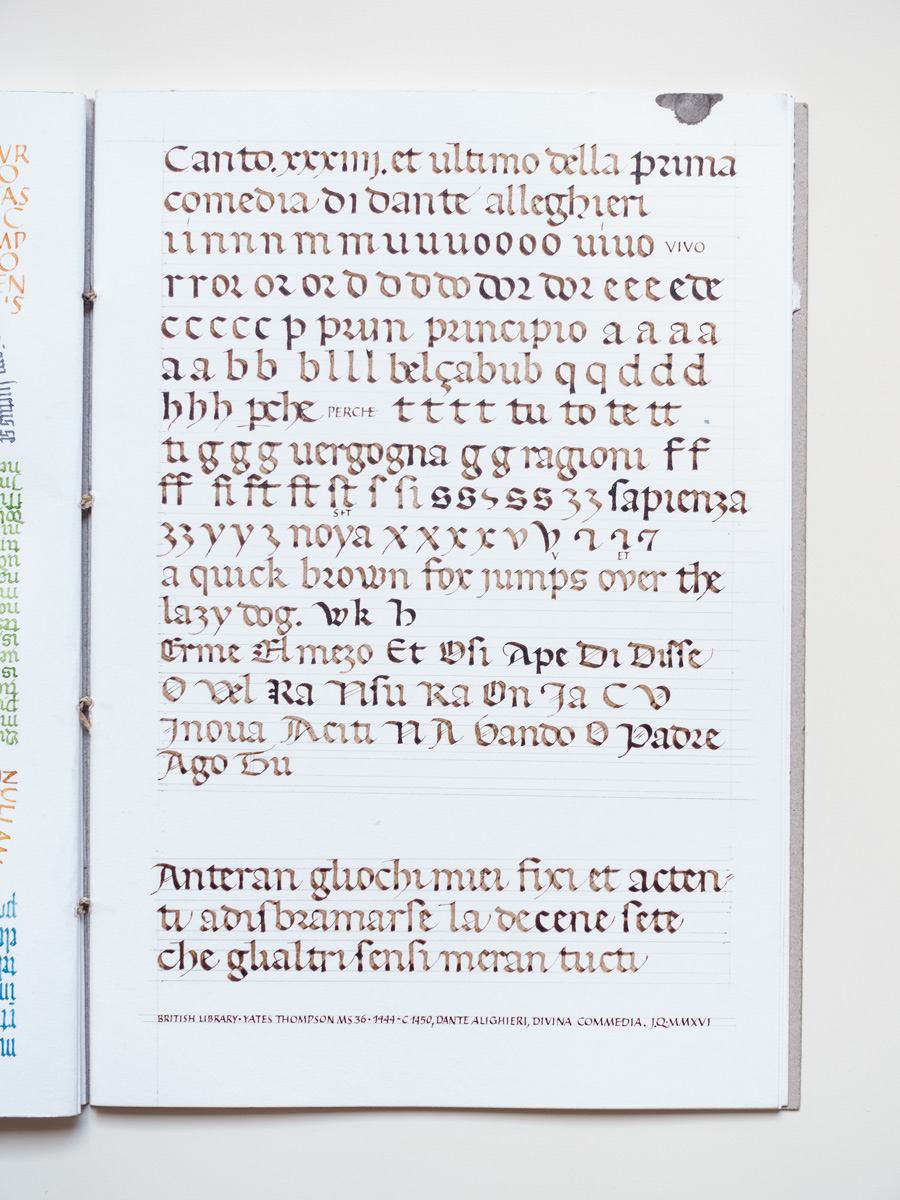 Canto.xxxiiij.et ultimo della prima
comedia di dante alleghieri
ı i n n n m m u u u o o o o uiuo VIVO
r r or or or d d d do dor dor e e e ede
c c c c c p prim principio a a a a
a a b b b l l l belçabub q q d d d
h h h pche PERCHE t t t t tu to te tt
ti g g g uergogna g g ragioni f f
ff fi ft ft ſt ſ ſi s s s s s 3 3 sapienza
S+T
3 3 y y 3 noya x x x x v v ⁊ ⁊ ⁊
V ET
a quick brown fox jumps over the
lazy dog. w k h
Erme El mezo Et Oſi Ape Di Diſſe
O Vel Ra Nſu Ra On Ja C V
Jnoua Aciti N A Gando O Padre
Ago Gu
Anteran gliochi miei fixi et acten-
ti adiſbramarſe la decene ſete
che glialtri ſenſi meran tucti
BRITISH LIBRARY · YATES THOMPSON MS 36 · 1444–C 1450, DANTE ALIGHIERI, DIVINA COMMEDIA. J.Q·MMXVI
VR
O
AS
C
MP
O
EN
'S